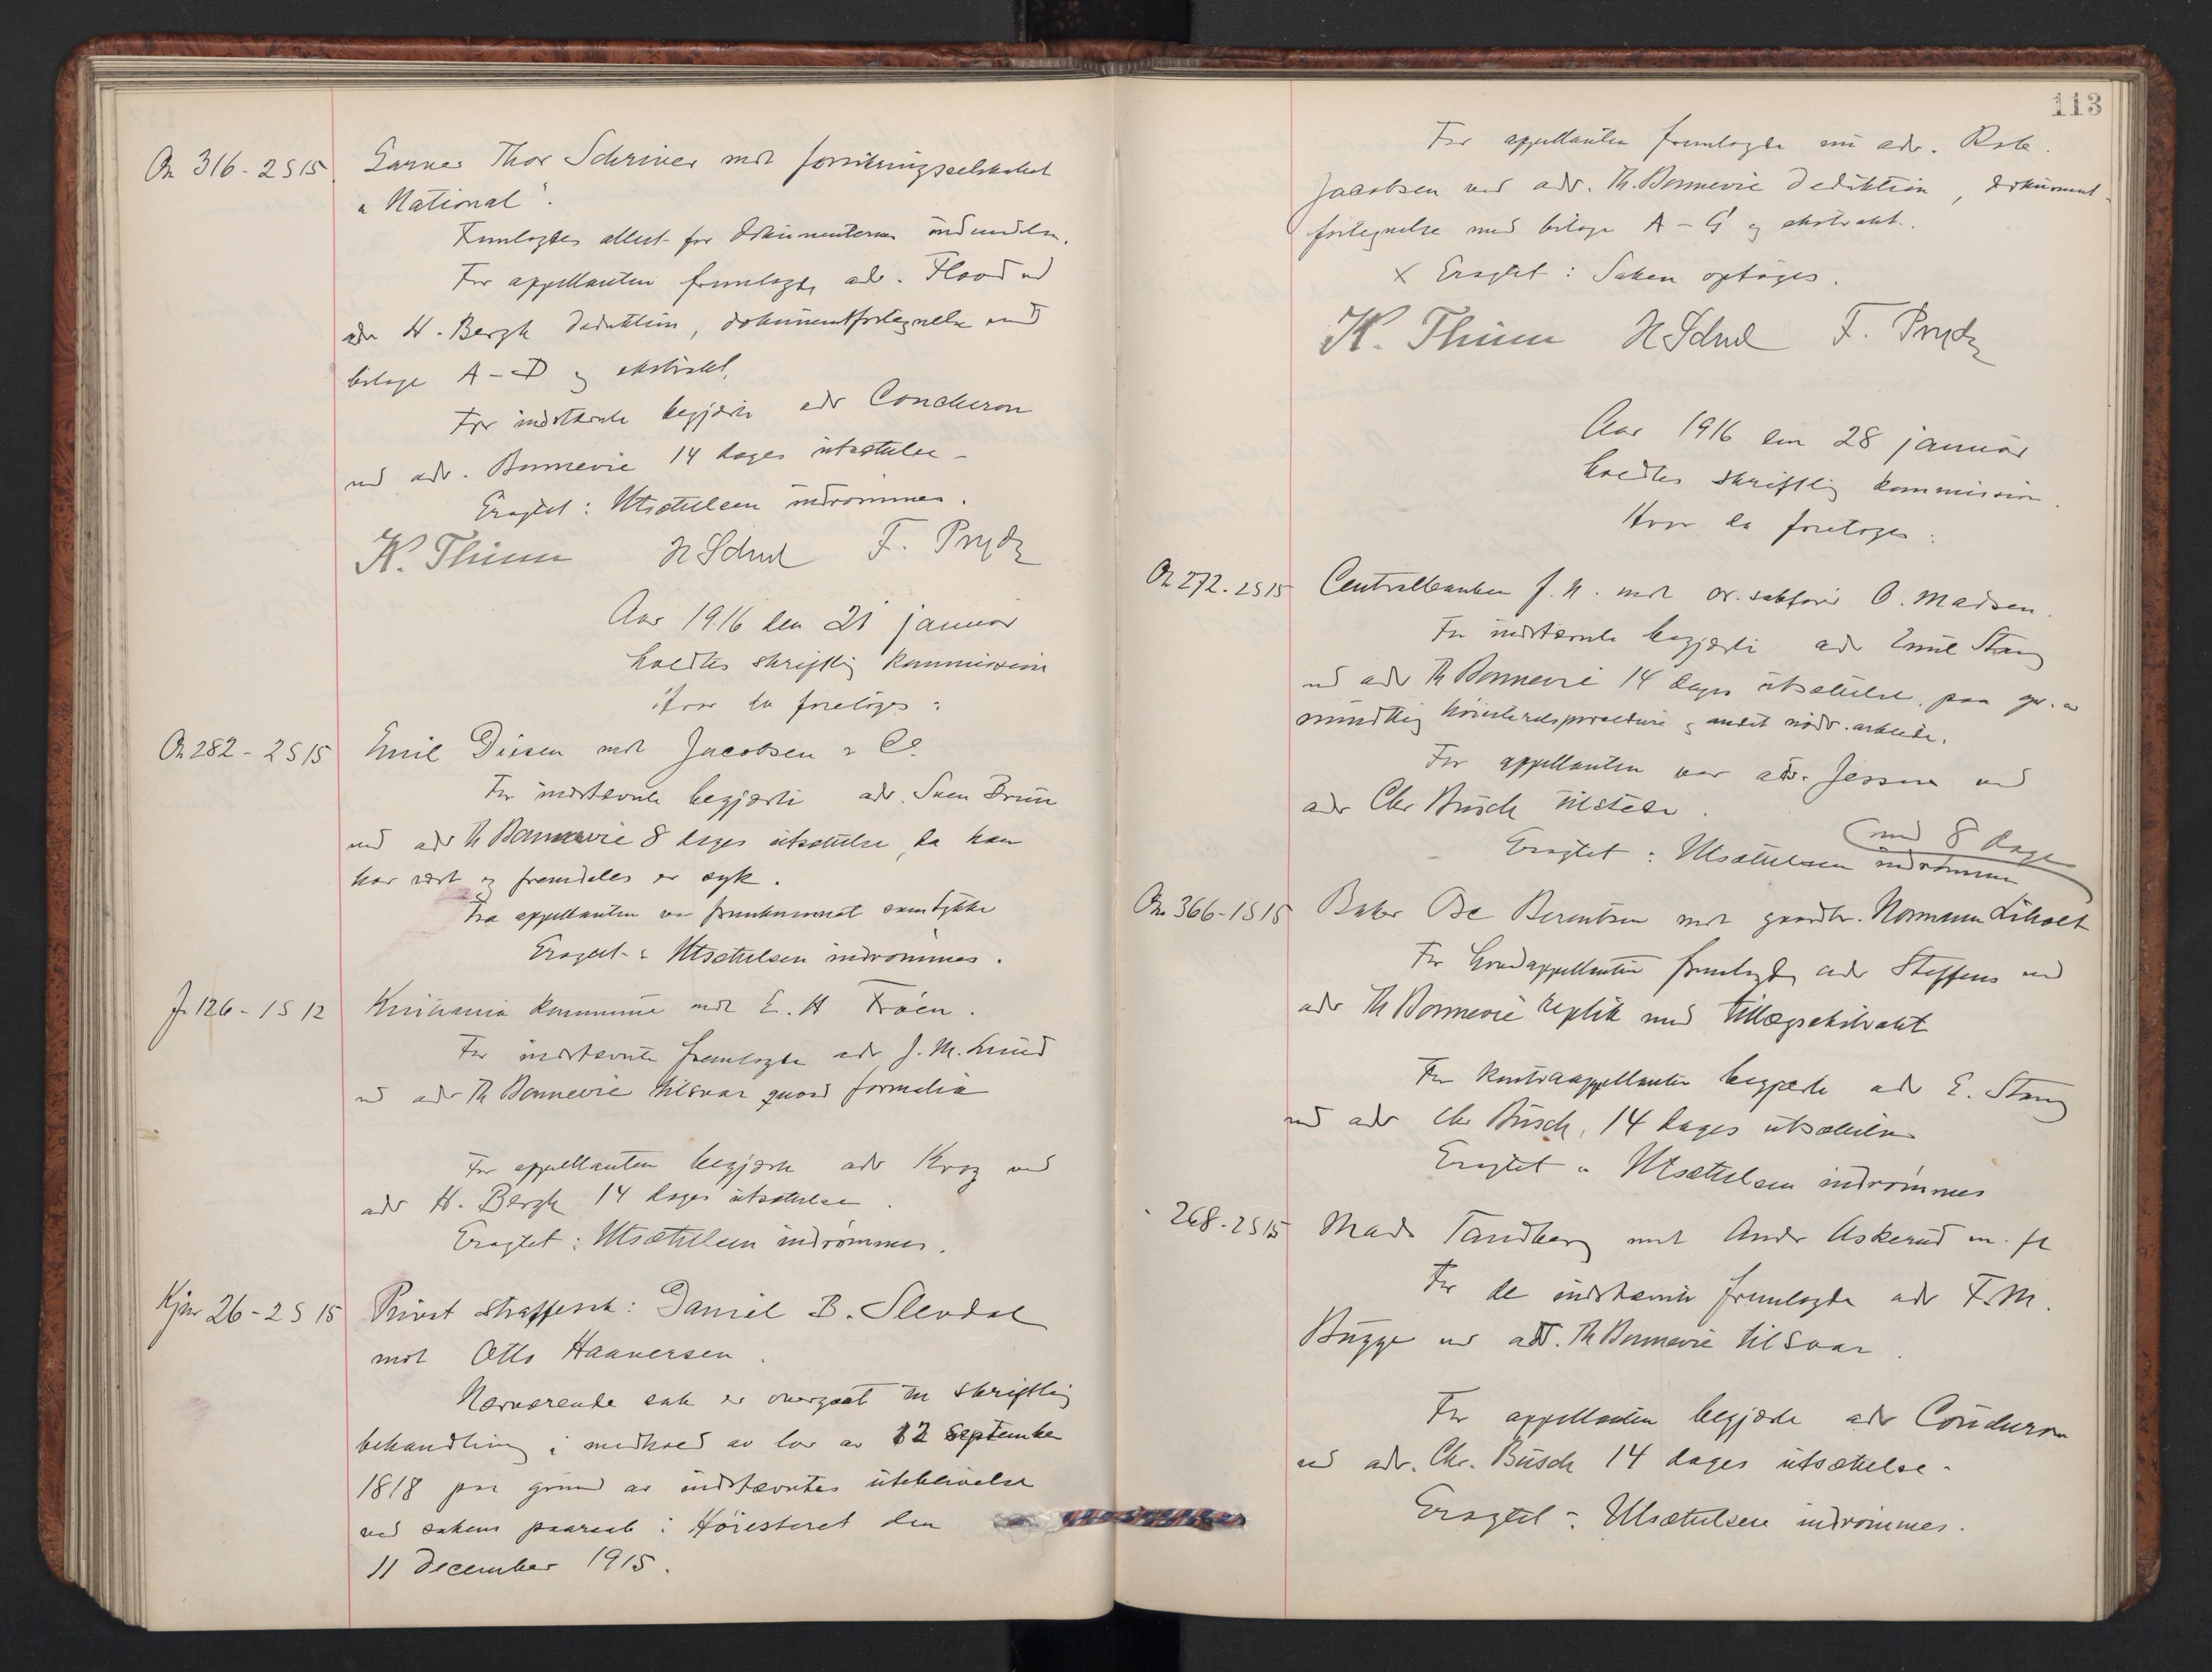 On 316 - 2 S 15
Garver Thor Schriver mot forsikringsselskabet
"National".
Fremlagdes attest for dokumenternes
For appellanten fremlagde adv. Flood ved
adv H. Bergh deduktion, dokumentfortegnelse med
bilage A - D og ekstrakt.
For indstævnte begjærte adv Conderon
ved adv. Bonnevie 14 dages utsættelse -
Eragtet: Utsættelsen indrømmes.
K. Thinn F. Prydz
Aar 1916 den 21 januar
holdtes skriftlig kommission
Hvor da foretoges:
On 282 - 2 S 15
Emil Diesen mot Jacobsen & Co.
For indstævnte begjærte adv. Sven Brun
ved adv Th Bonnevie 8 dages utsættelse, da han
har vært og fremdeles er syk.
Fra appellanten var fremkommet samtykke
Eragtet: Utsættelsen indrømmes.
J. 126 - 1 S 12
Kristiania kommune mot E. H Frøen.
For indstævnte fremlagde adv J. M. Lund
ved adv Th Bonnevie tilsvar quoad formalia
For appellanten begjærte adv Krog ved
adv H. Bergh 14 dages utsættelse.
Eragtet: Utsættelsen indrømmes.
Kjær 26 - 2 S 15
Privat straffesak: Daniel B. Slevdal
mot Otto Haaversen.
Nærværende sak er overgaat til skriftlig
behandling i medhold av lov av 12 september
1818 paa grund av indstævntes uteblivelse
ved sakens paarop i Høiesteret den
11 december 1915.
113
For appellanten fremlagde nu adv. Rolf
Jacobsen ved adv. Th. Bonnevie deduktion, dokument-
fortegnelse med bilage A - G og ekstrakt.
x Eragtet: Saken optages.
K. Thinn F. Prydz
Aar 1916 den 28 januar
holdtes skriftlig kommission.
Hvor da foretoges:
On 272 - 2 S 15
Centralbanken f. N. mot or. sakfører O. Madsen.
For indstævnte begjærte adv Emil Stang
ved adv Th Bonnevie 14 dages utsættelse, paa gr. av
mundtlig høiesteretsprocedure og andet nødv. arbeide.
For appellanten var adv. Jessen ved
adv Chr Busch tilstede.
Eragtet: Utsættelsen indrømmes
med 8 dage
On 366 - 1 S 15
Baker Berentsen mot gaardbr. Normann Liholt
For hovedappellanten fremlagde adv Steffens ved
adv Th Bonnevie replik med tillægsekstrakt
For kontraappellanten begjærte adv E. Stang
ved adv Chr Busch, 14 dages utsættelse
Eragtet: Utsættelsen indrømmes
" 268 - 2 S 15
Mads Tandberg mot Andr Askerud m. fl
For de indstævnte fremlagde adv F. M.
Bugge ved adv. Th Bonnevie tilsvar.
For appellanten begjærte adv Conderon
ved adv. Chr. Busch 14 dages utsættelse.
Eragtet: Utsættelsen indrømmes.